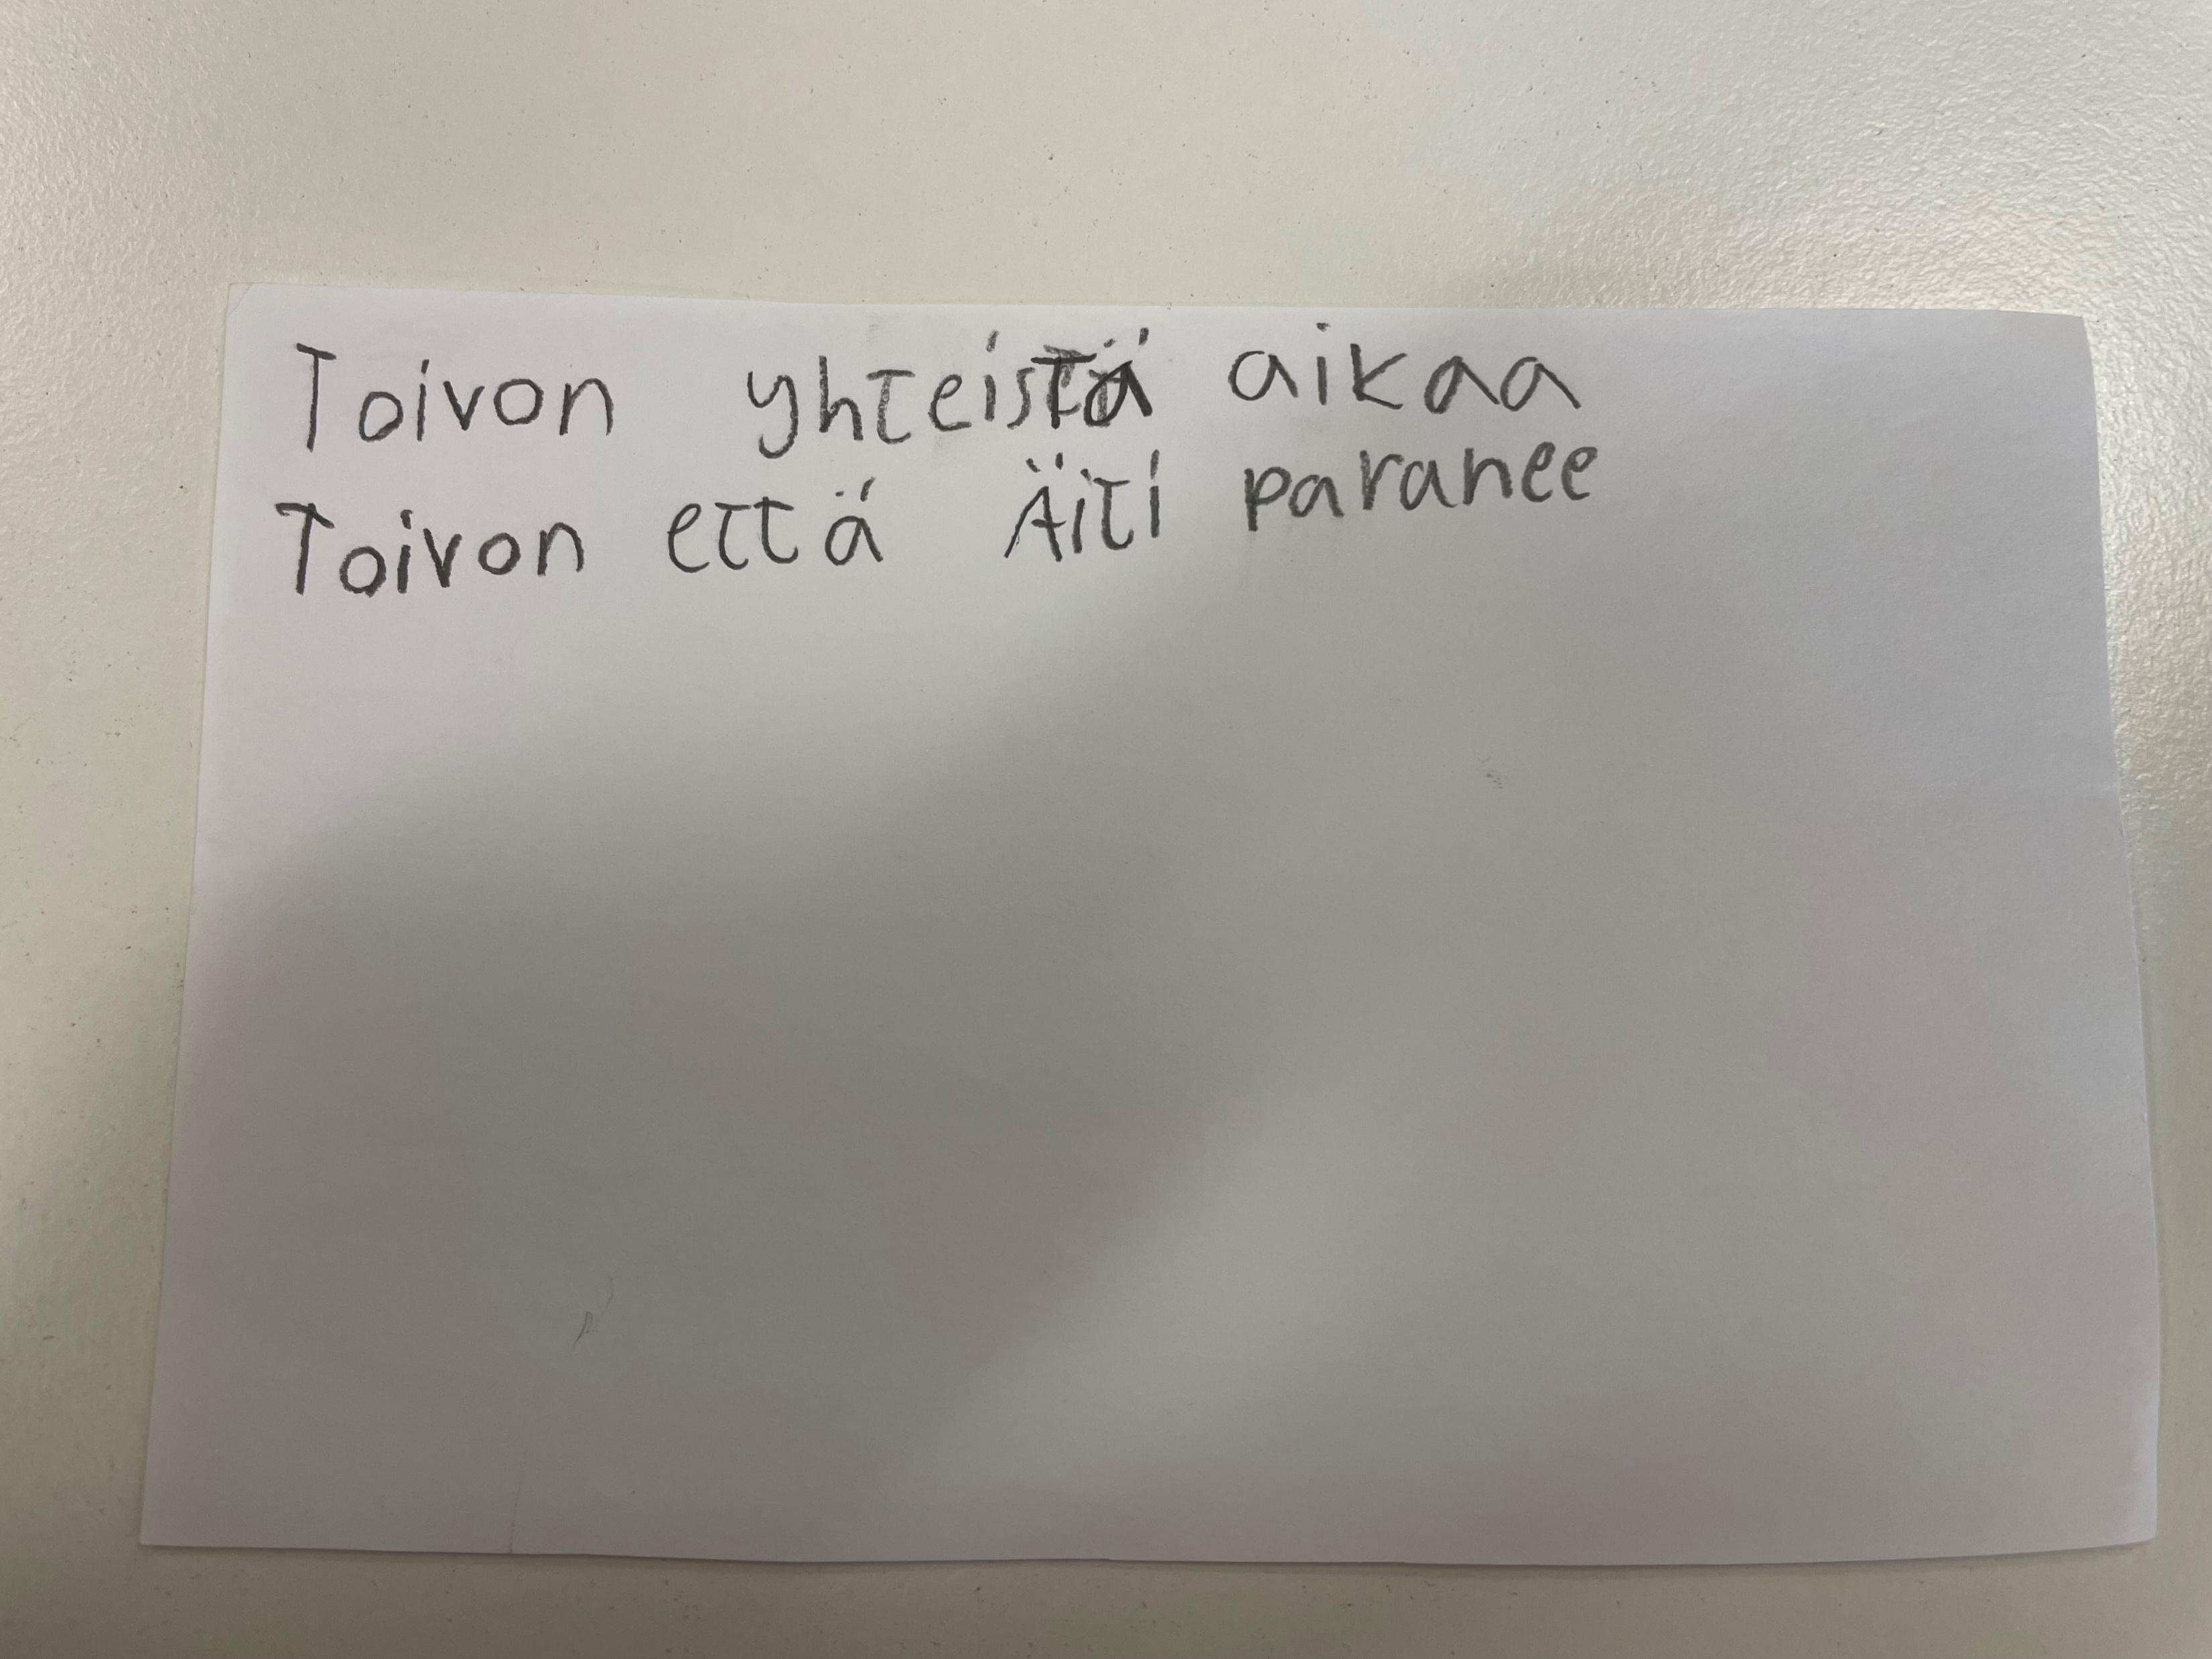 Toivon yhteistä aikaa
Toivon että Äiti paranee